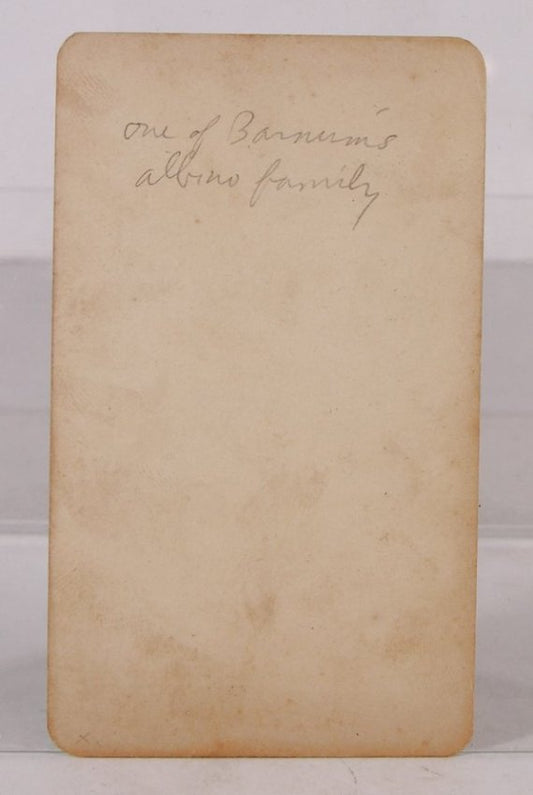 one of Barnum's
albino family